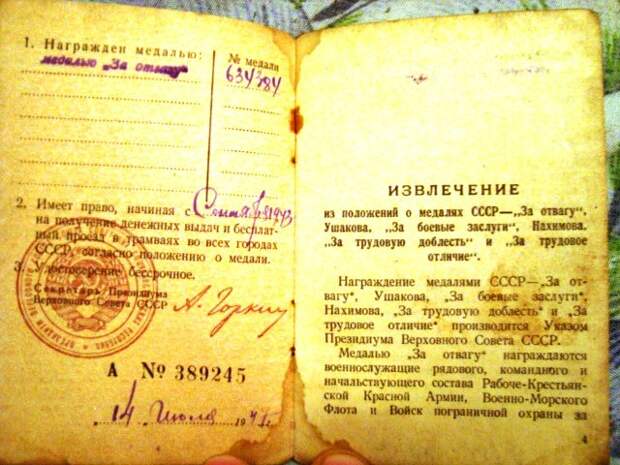 1. Награжден медалью:
№ медали
медалью „За отвагу“
634384
2. Имеет право, начиная с Сентября 1943
на получение денежных выдач и бесплат-
ный проезд в трамваях во всех городах
СССР, согласно положению о медали.
3. Удостоверение бессрочное.
Секретарь Президиума
Верховного Совета СССР А. Горкин
А № 389245
14 Июля 194
ИЗВЛЕЧЕНИЕ
из положений о медалях СССР—„За отвагу“,
Ушакова, „За боевые заслуги“, Нахимова,
„За трудовую доблесть“ и „За трудовое
отличие“.
Награждение медалями СССР—„За от-
вагу“, Ушакова, „За боевые заслуги“,
Нахимова, „За трудовую доблесть“ и „За
трудовое отличие“ производится Указом
Президиума Верховного Совета СССР.
Медалью „За отвагу“ награждаются
военнослужащие рядового, командного и
начальствующего состава Рабоче-Крестьян-
ской Красной Армии, Военно-Морского
Флота и Войск пограничной охраны за
4